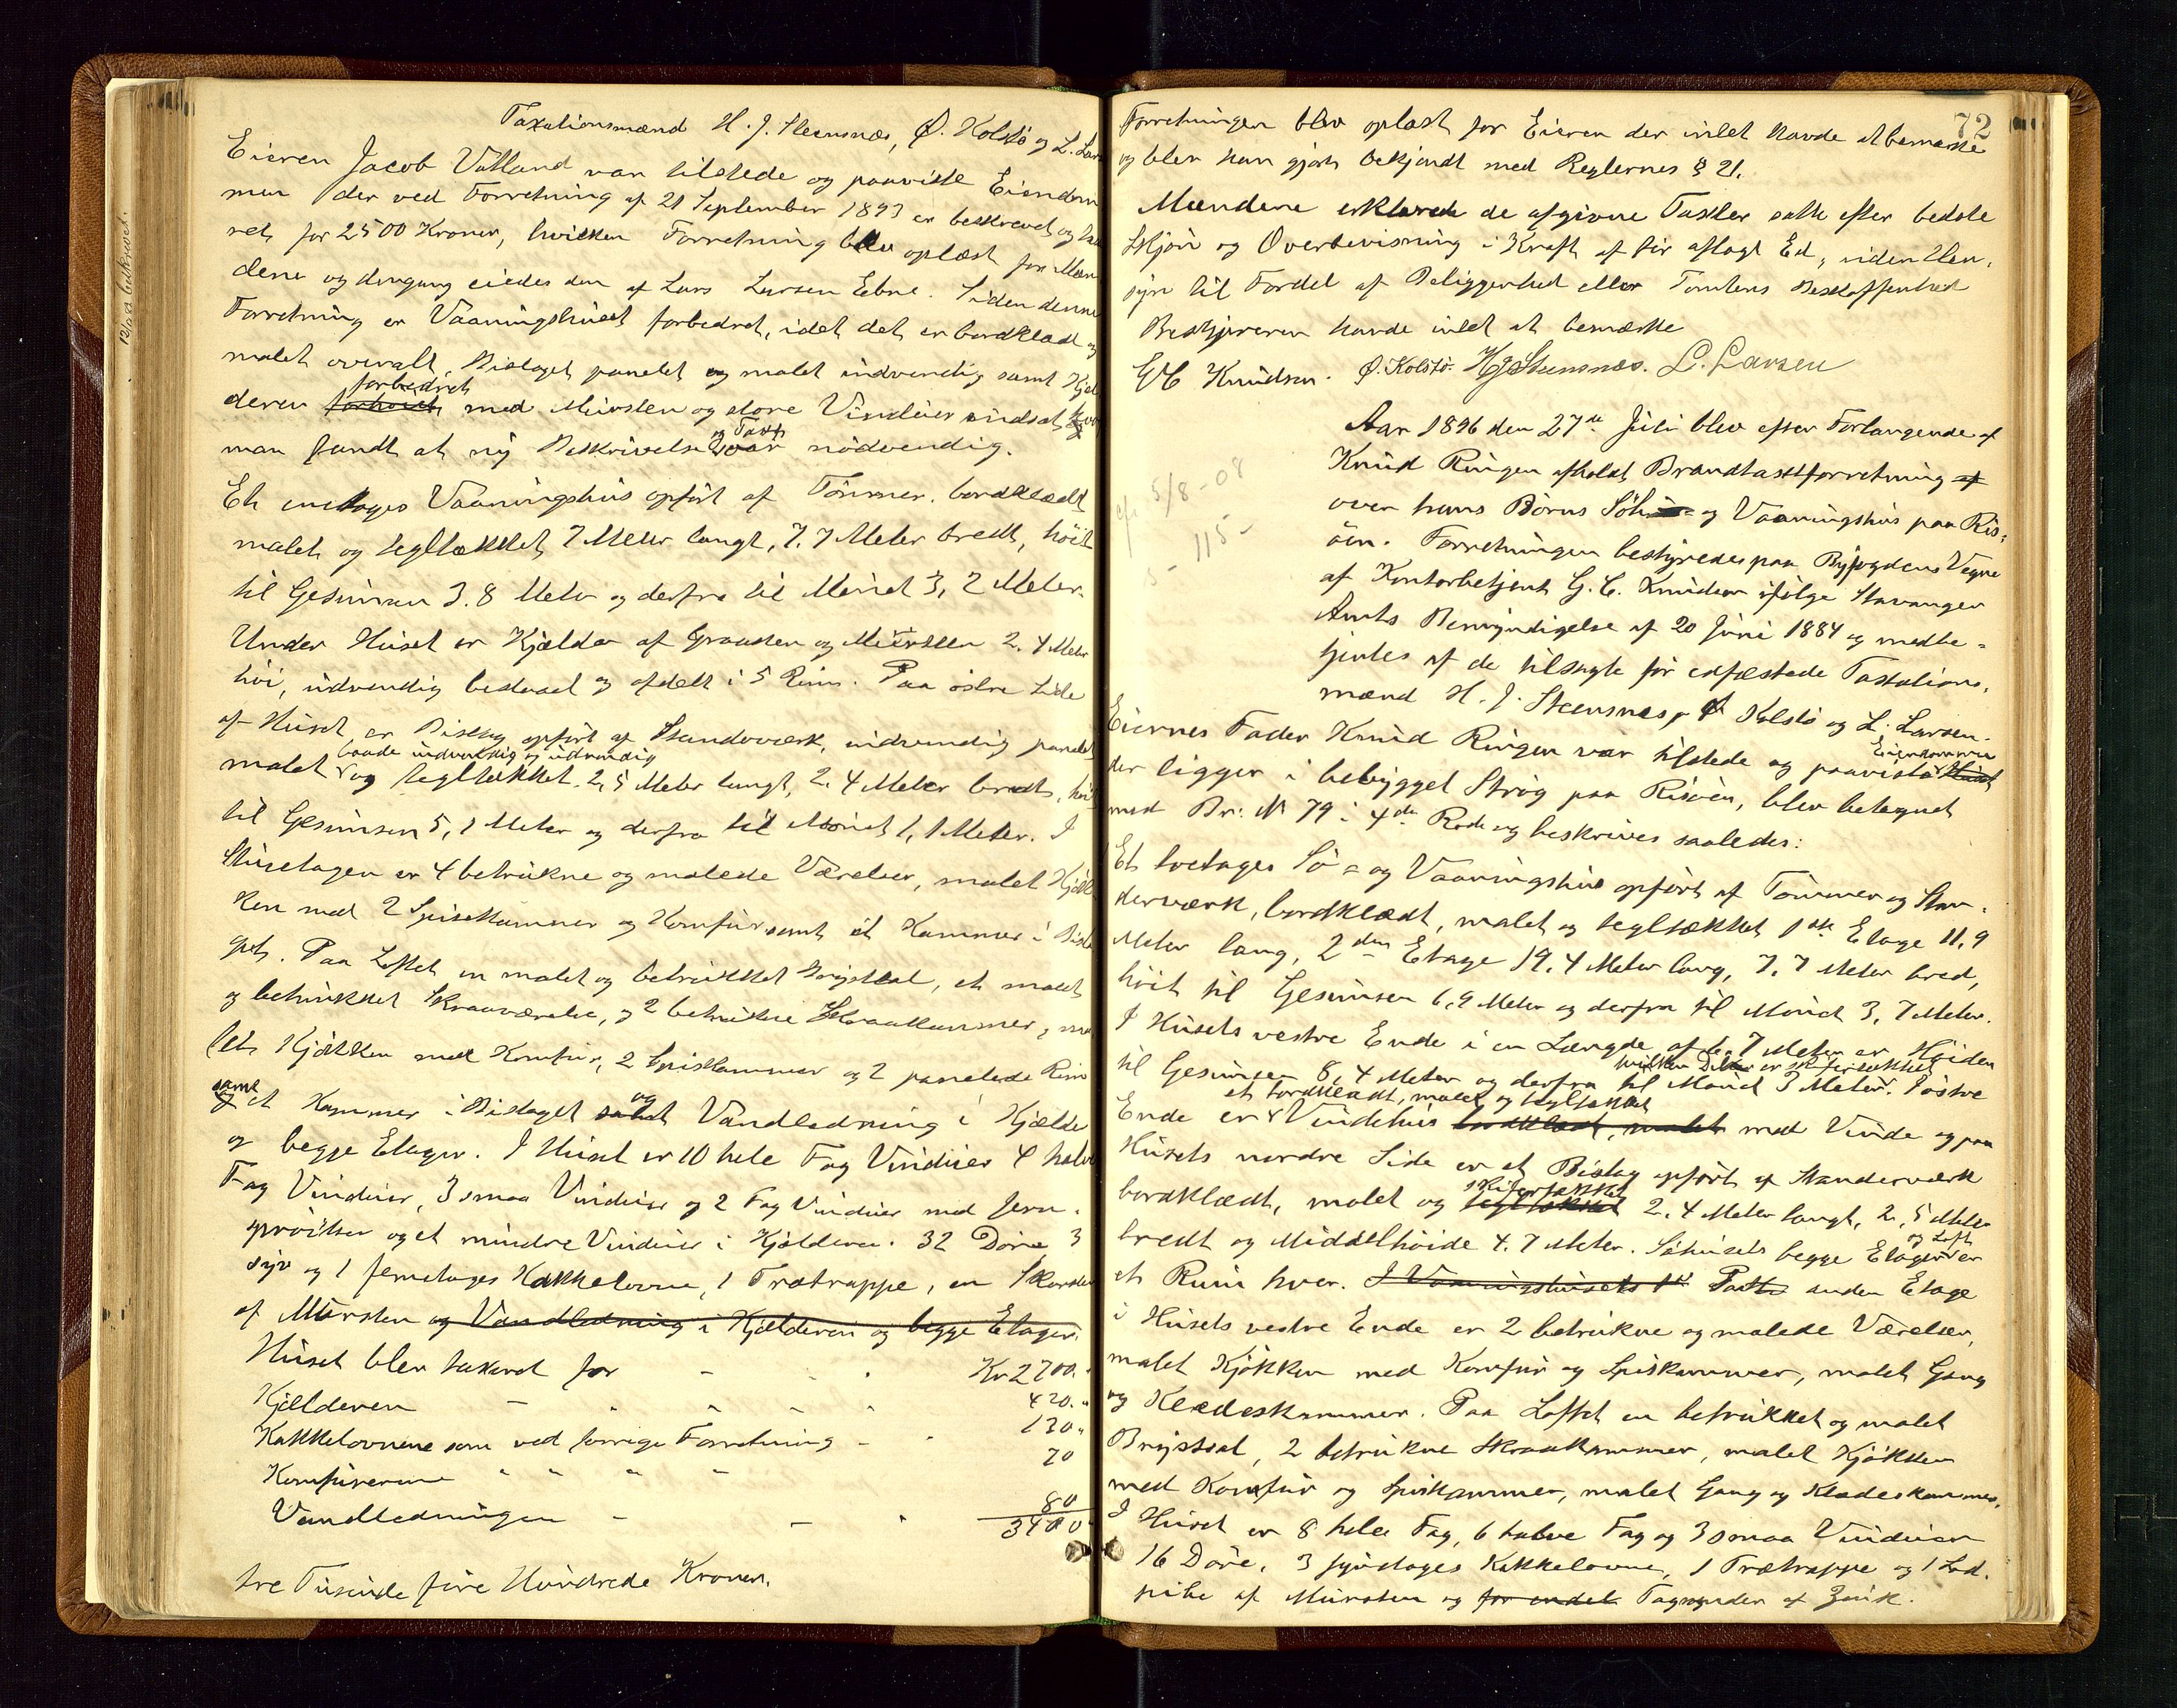 Taxationsmænd H. J. Steensnæs, Ø. Kolstø og L. Lar
Eieren Jacob Vatland var tilstede og paaviste Eiendom
men der ved Forretning af 21 September 1893 er beskrevet og tax
ret for 2500 Kroner, hvilken Forretning blev oplæst for Mæn
dene og dengang eiedes den af Lars Larsen Ebne. Siden denne
Forretning er Vaaningshuset forbedret, idet det er bordklædt og
malet overalt, Bislaget panelet og malet indvendig samt Kjel
forbedret
deren forhøiet med Mursten og store Vinduer indsat,
og Taxt
man fandt at ny Beskrivelse var nødvendig.
Et enetages Vaaningshus opført af Tømmer, bordklædt
malet og tegltækket 7 Meter langt, 7.7 Meter bredt, høit
til Gesimsen 3.8 Meter og derfra til Mønet 3,2 Meter.
Under Huset er Kjælder af Graasten og Mursten 2.4 Meter
høi, udvendig og afdelt i 5 Rum. Paa østre Side
af Huset er Bislag opført af Standværk, indvendig panelet
baade indvendig og udvendig
malet og tegltækket 2,5 Meter langt, 2.4 Meter bredt, høit
til Gesimsen 5,1 Meter og derfra til Mønet 1,1 Meter. I
Stuetagen er 4 betrukne og malede Værelser, malet Kjøk
ken med 2 Spisekammer og Komfur samt et Kammer i Bisla
get. Paa Loftet en malet og betrukket Brystsal, et malet
og betrukket Skraaværelse, og 2 betrukne Skraakammer, ma
let Kjøkken med Komfur, 2 Spiskammer og 2 panelede Rum
samt og
og et Kammer i Bislaget samt Vandledning i Kjælder
og begge Etager. I Huset er 10 hele Fag Vinduer 4 halve
Fag Vinduer, 3 smaa Vinduer og 2 Fag Vinduer med Jern
sprosser og et mindre Vindue i Kjælderen. 32 Døre, 3
syv og 1 femetages Kakkelovne, 1 Trætrappe, en Skorsten
af Mursten og Vandledning i Kjælderen og begge Etager.
Huset blev taxeret for - - - Kr 2700.
Kjelderen - - - - 420.
Kakkelovnene som ved forrige Forretning - - 130.
Komfurerne " " " " 70
Vandledningen - - - 80
3400
tre Tusinde fire Hundrede Kroner.
72
Forretningen blev oplæst for Eieren der intet havde at bemærke
og blev han gjort bekjendt med Reglernes § 21.
Mændene erklærede de afgivne Taxter satte efter bedste
Skjøn og Overbevisning i Kraft af før aflagt Ed, uden Hen,
syn til Fordel af Beliggenhed eller Tomtens Beskaffenhed
Bestyreren havde intet at bemærke
G C Knudsen. Ø. Kolstø. HJ Steensnæs. L. Larsen
Aar 1896 den 27de Juli blev efter Forlangende af
Knud Ringen afholdt Brandtaxtforretning af
over hans Børns Søhus og Vaaningshus paa Ris,
5/8-08
115-
øen. Forretningen bestyredes paa Byfogdens Vegne
af Kontorbetjent G. C. Knudsen ifølge Stavanger
Amts Bemyndigelse af 20 Juni 1884 og medbe=
tjentes af de tilsagte før edfæstede Taxations,
mænd H. J. Steensnæs, Ø Kolstø og L. Larsen.
Eiernes Fader Knud Ringen var tilstede og paaviste Huset
Eiendommen
der ligger i bebygget Strøg paa Risøen, blev betegnet
med Br: No 79 i 4de Rode og beskrives saaledes:
Et toetages Sø= og Vaaningshus opført af Tømmer og Stan,
derværk, bordklædt, malet og tegltækket 1ste Etage 11,9
Meter lang, 2den Etage 19.4 Meter lang, 7.7 Meter bred,
høit til Gesimsen 6,9 Meter og derfra til Mønet 3,7 Meter.
I Husets vestre Ende i en Længde af 6.7 Meter er Høiden
hvilken Del er skifertækket
til Gesimsen 8,4 Meter og derfra til Mønet 3 Meter. I østre
et bordklædt, malet og tegltækket
Ende er Vindehus bordklædt, malet med Vinde og paa
Husets nordre Side er et Bislag opført af Standerværk
skifertækket
bordklædt, malet og tegltækket 2.4 Meter langt, 2,5 Meter
og Loft
bredt og Middelhøide 4.7 Meter. Søhusets begge Etager er
et Rum hver. I Vaaningshusets 1st anden Etage
i Husets vestre Ende er 2 betrukne og malede Værelser,
malet Kjøkken med Komfur og Spiskammer, malet Gang
og Klædeskammer. Paa Loftet en betrukket og malet
Brystsal, 2 betrukne Skraakammer, malet Kjøkken
med Komfur og Spiskammer, malet Gang og Klædeskammer.
I Huset er 8 hele Fag, 6 halve Fag og 3 smaa Vinduer
16 Døre, 3 syvetages Kakkelovne, 1 Trætrappe og 1 Lod.
pibe af Mursten og for endel Tagrender af Zink.